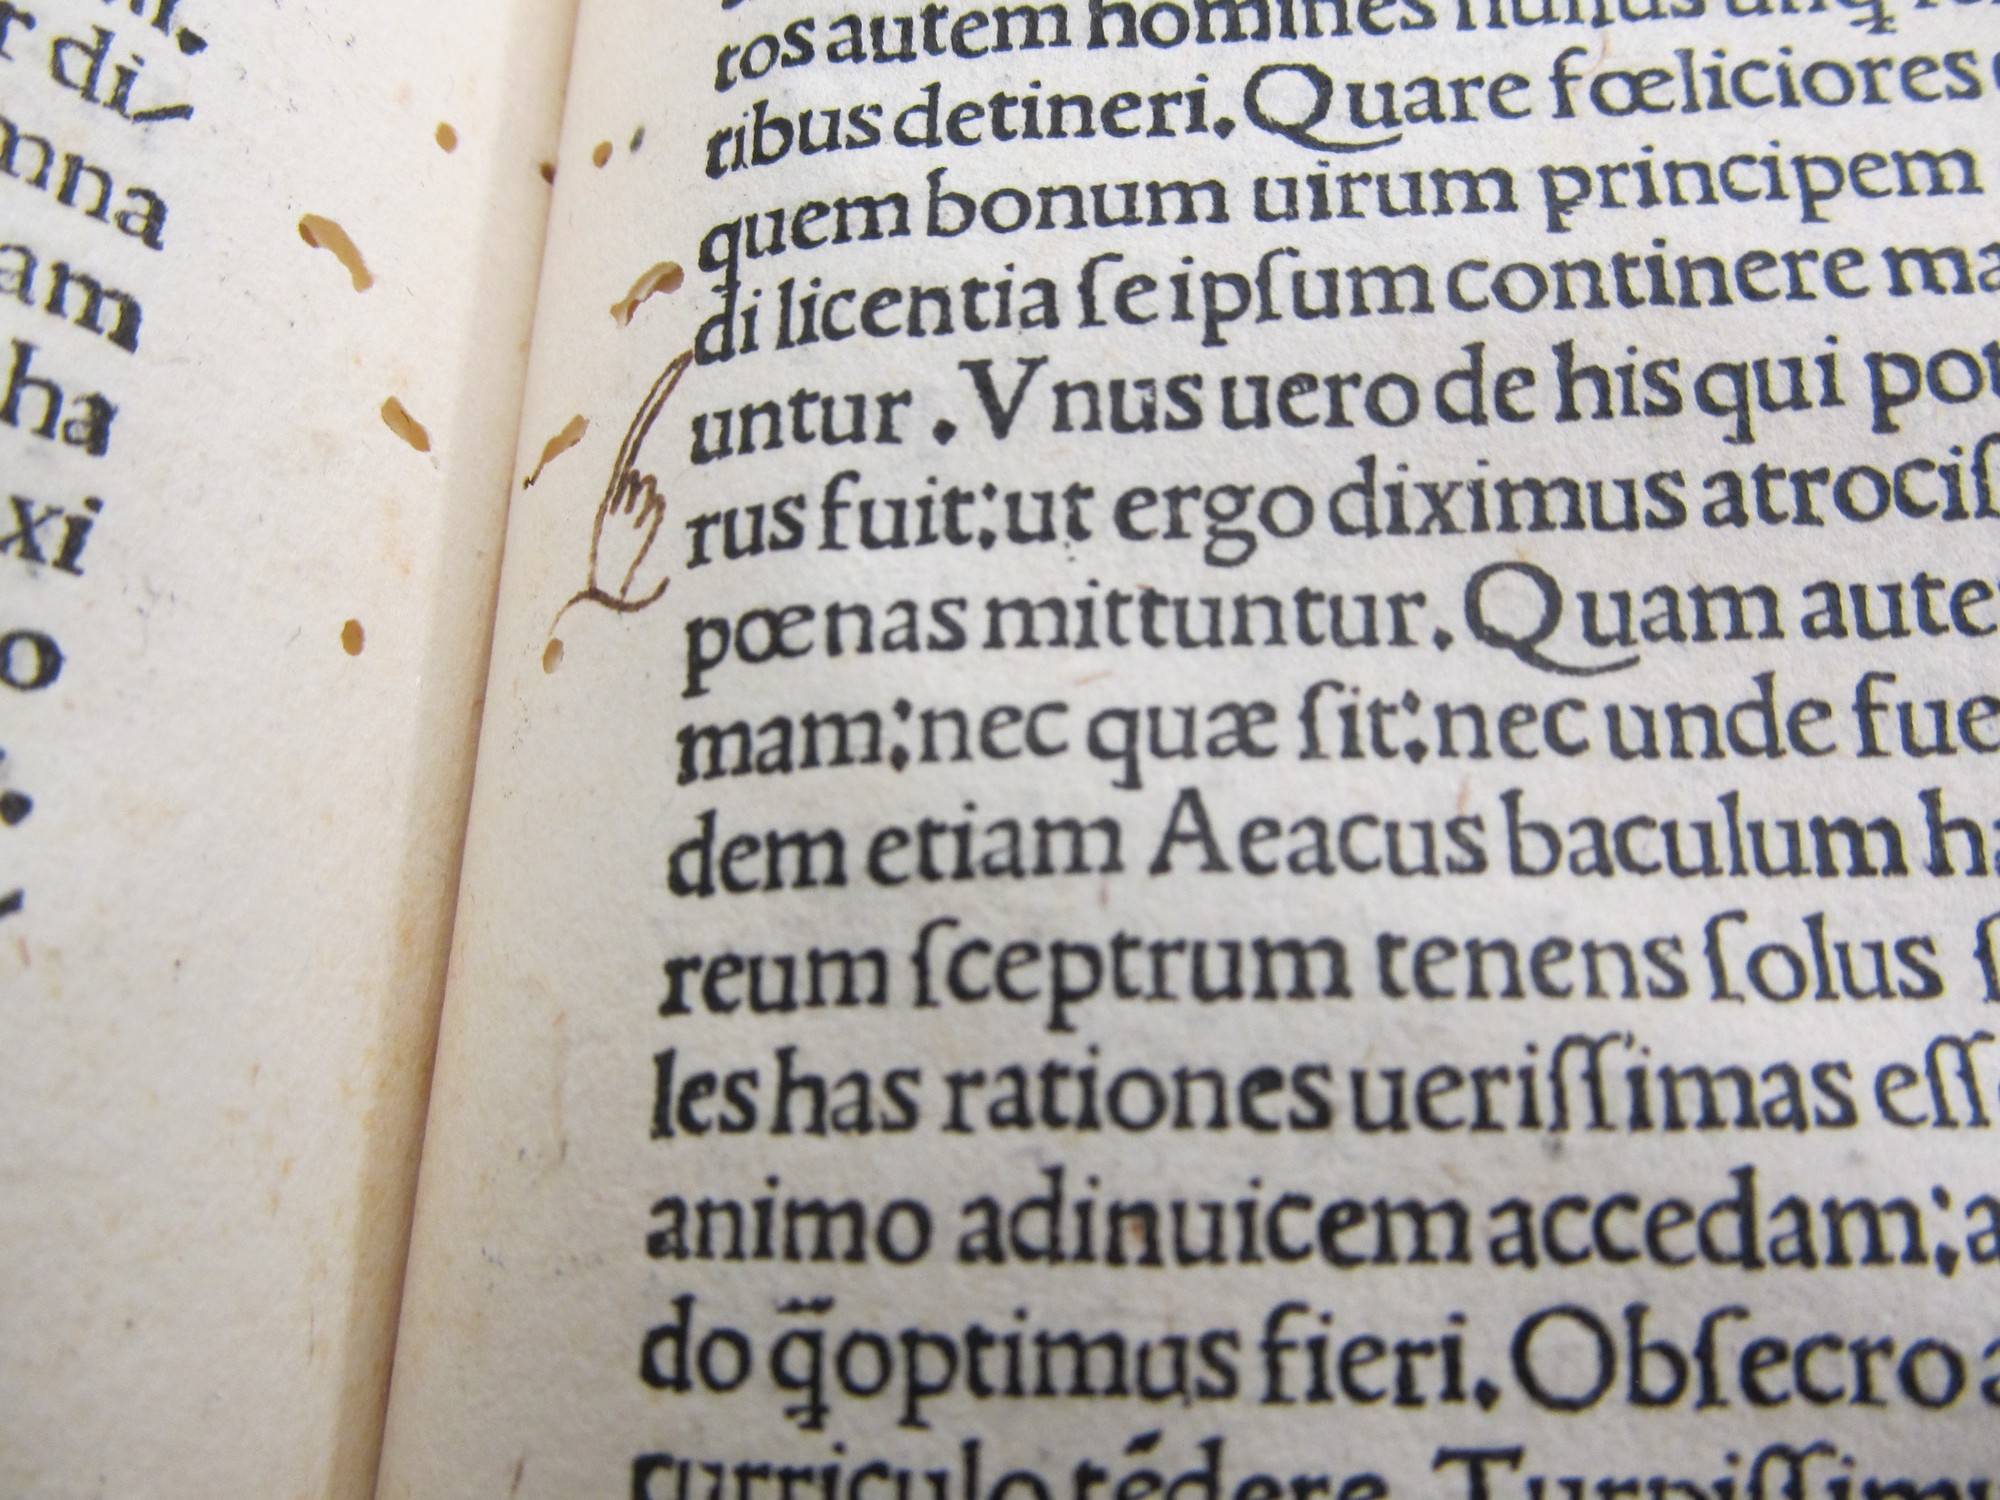 r di⸗
mna
am
ha
xi
o
ros autem homines nullus unq̃
ribus detineri. Quare fœliciores
quem bonum uirum principem
di licentia ſe ipſum continere ma
untur . Vnus uero de his qui pot
rus fuit: ut ergo diximus atrociſ
pœnas mittuntur. Quam aute
mam: nec quæ ſit: nec unde fue
dem etiam Aeacus baculum ha
reum ſceptrum tenens ſolus ſ
les has rationes ueriſſimas eſſe
animo adinuicem accedam: a
do q̃ optimus fieri. Obſecro a
curriculo tédere. Turpiſſimu